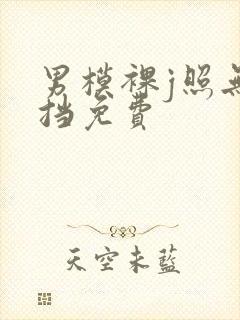 男模裸j照无
挡免費
天空未藍